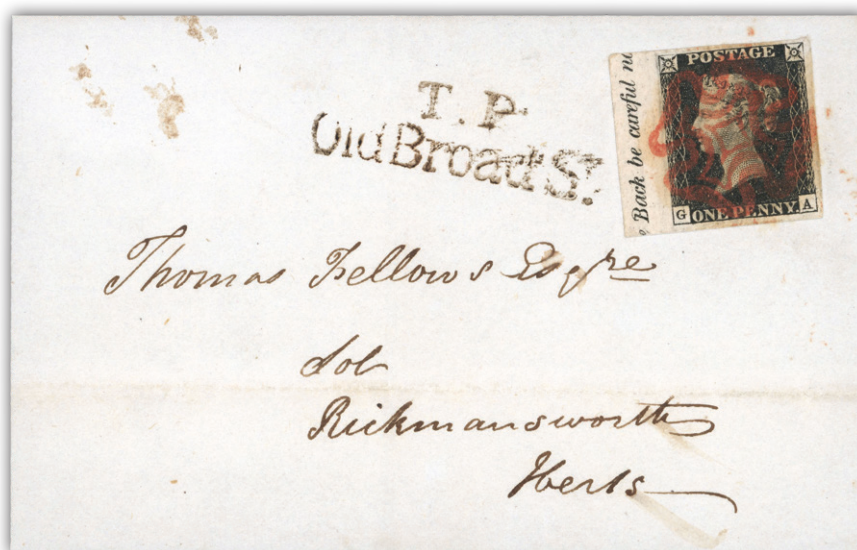 T.P.
Old Broad St.
POSTAGE
Back be careful
G ONE PENNY A
Thomas Fellows Esqre
Sol
Rickmansworth
Herts